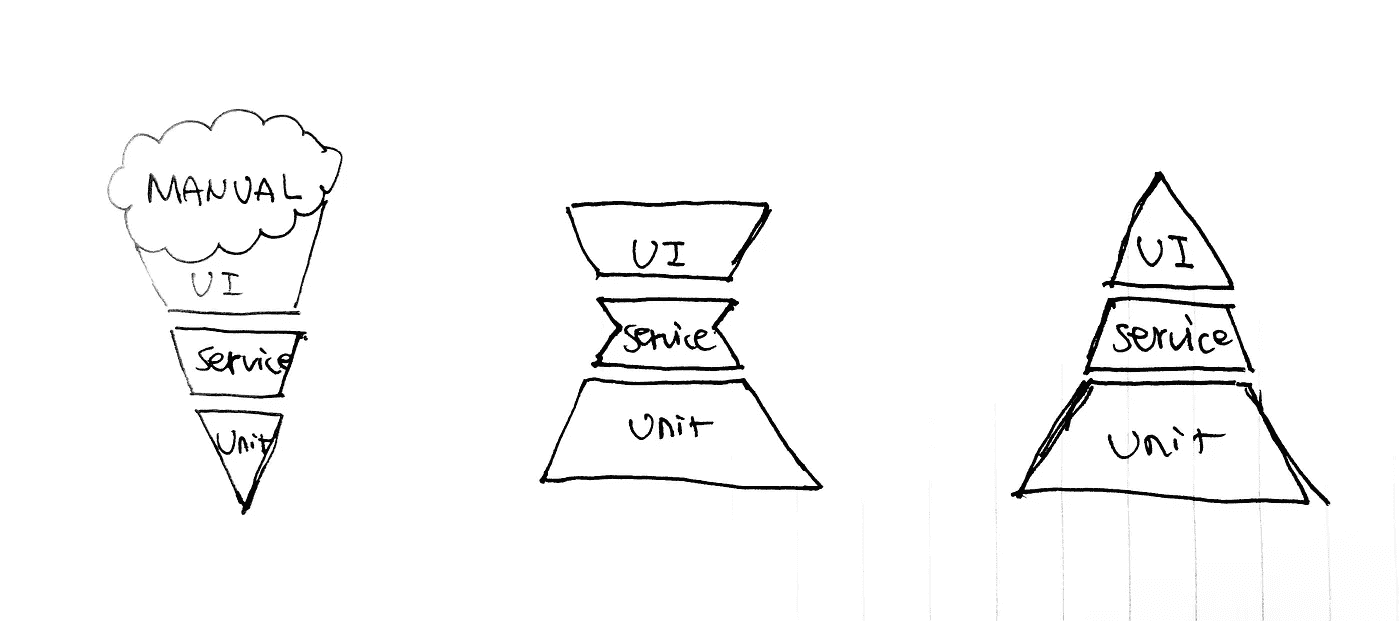 MANUAL
UI
Service
Unit
UI
Service
Unit
UI
Service
Unit